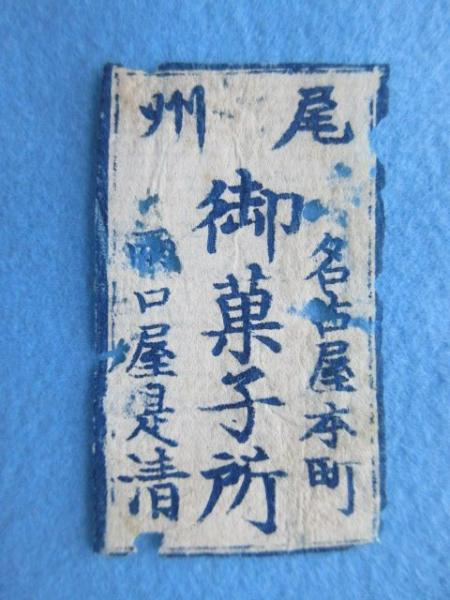 尾州
名古屋本町
御菓子所
両口屋是清